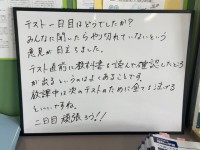 テスト一日目はどうでしたか?
みんなに聞いたらやり切れていないという
意見が目立ちました。
テスト直前に教科書を読んで確認したところ
が出るというのはよくあることです。
放課中は次のテストのために全てを注げる
といいですね。
二日目頑張ろう!!